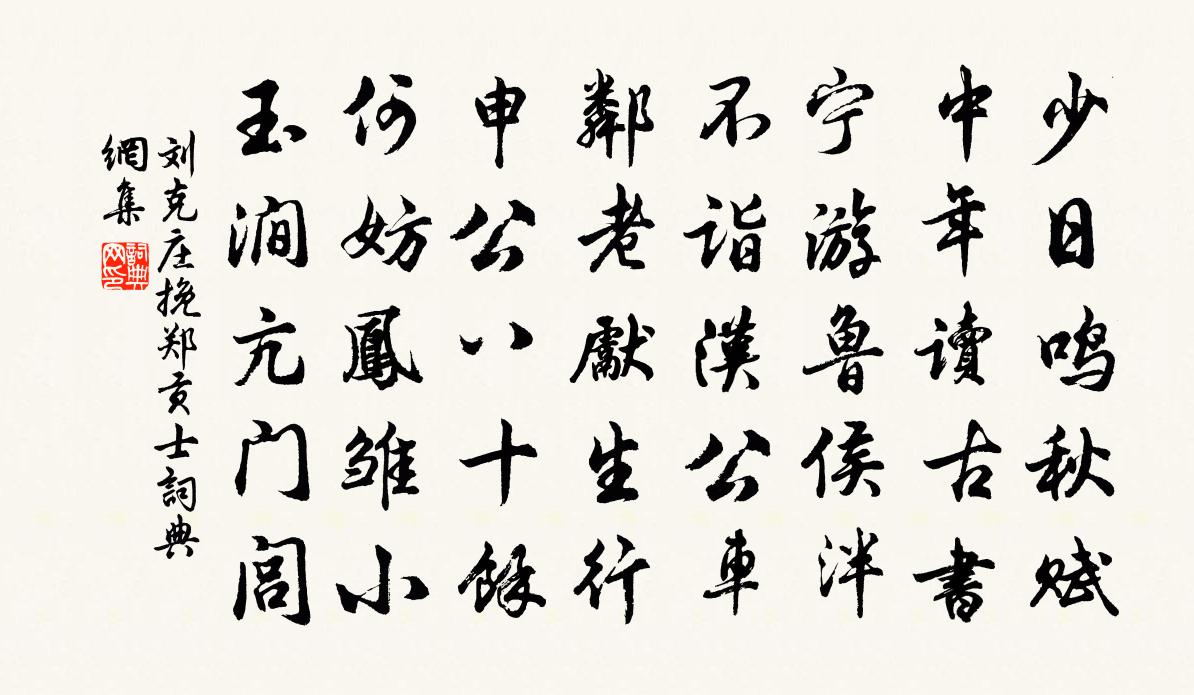 少日鸣秋赋
中年讀古書
宁游鲁侯泮
不诣漢公車
鄰老獻生行
申公八十餘
何妨鳳雏小
玉涧亢门闾
刘克庄挽郑贡士詞典
網集
詞典
网印